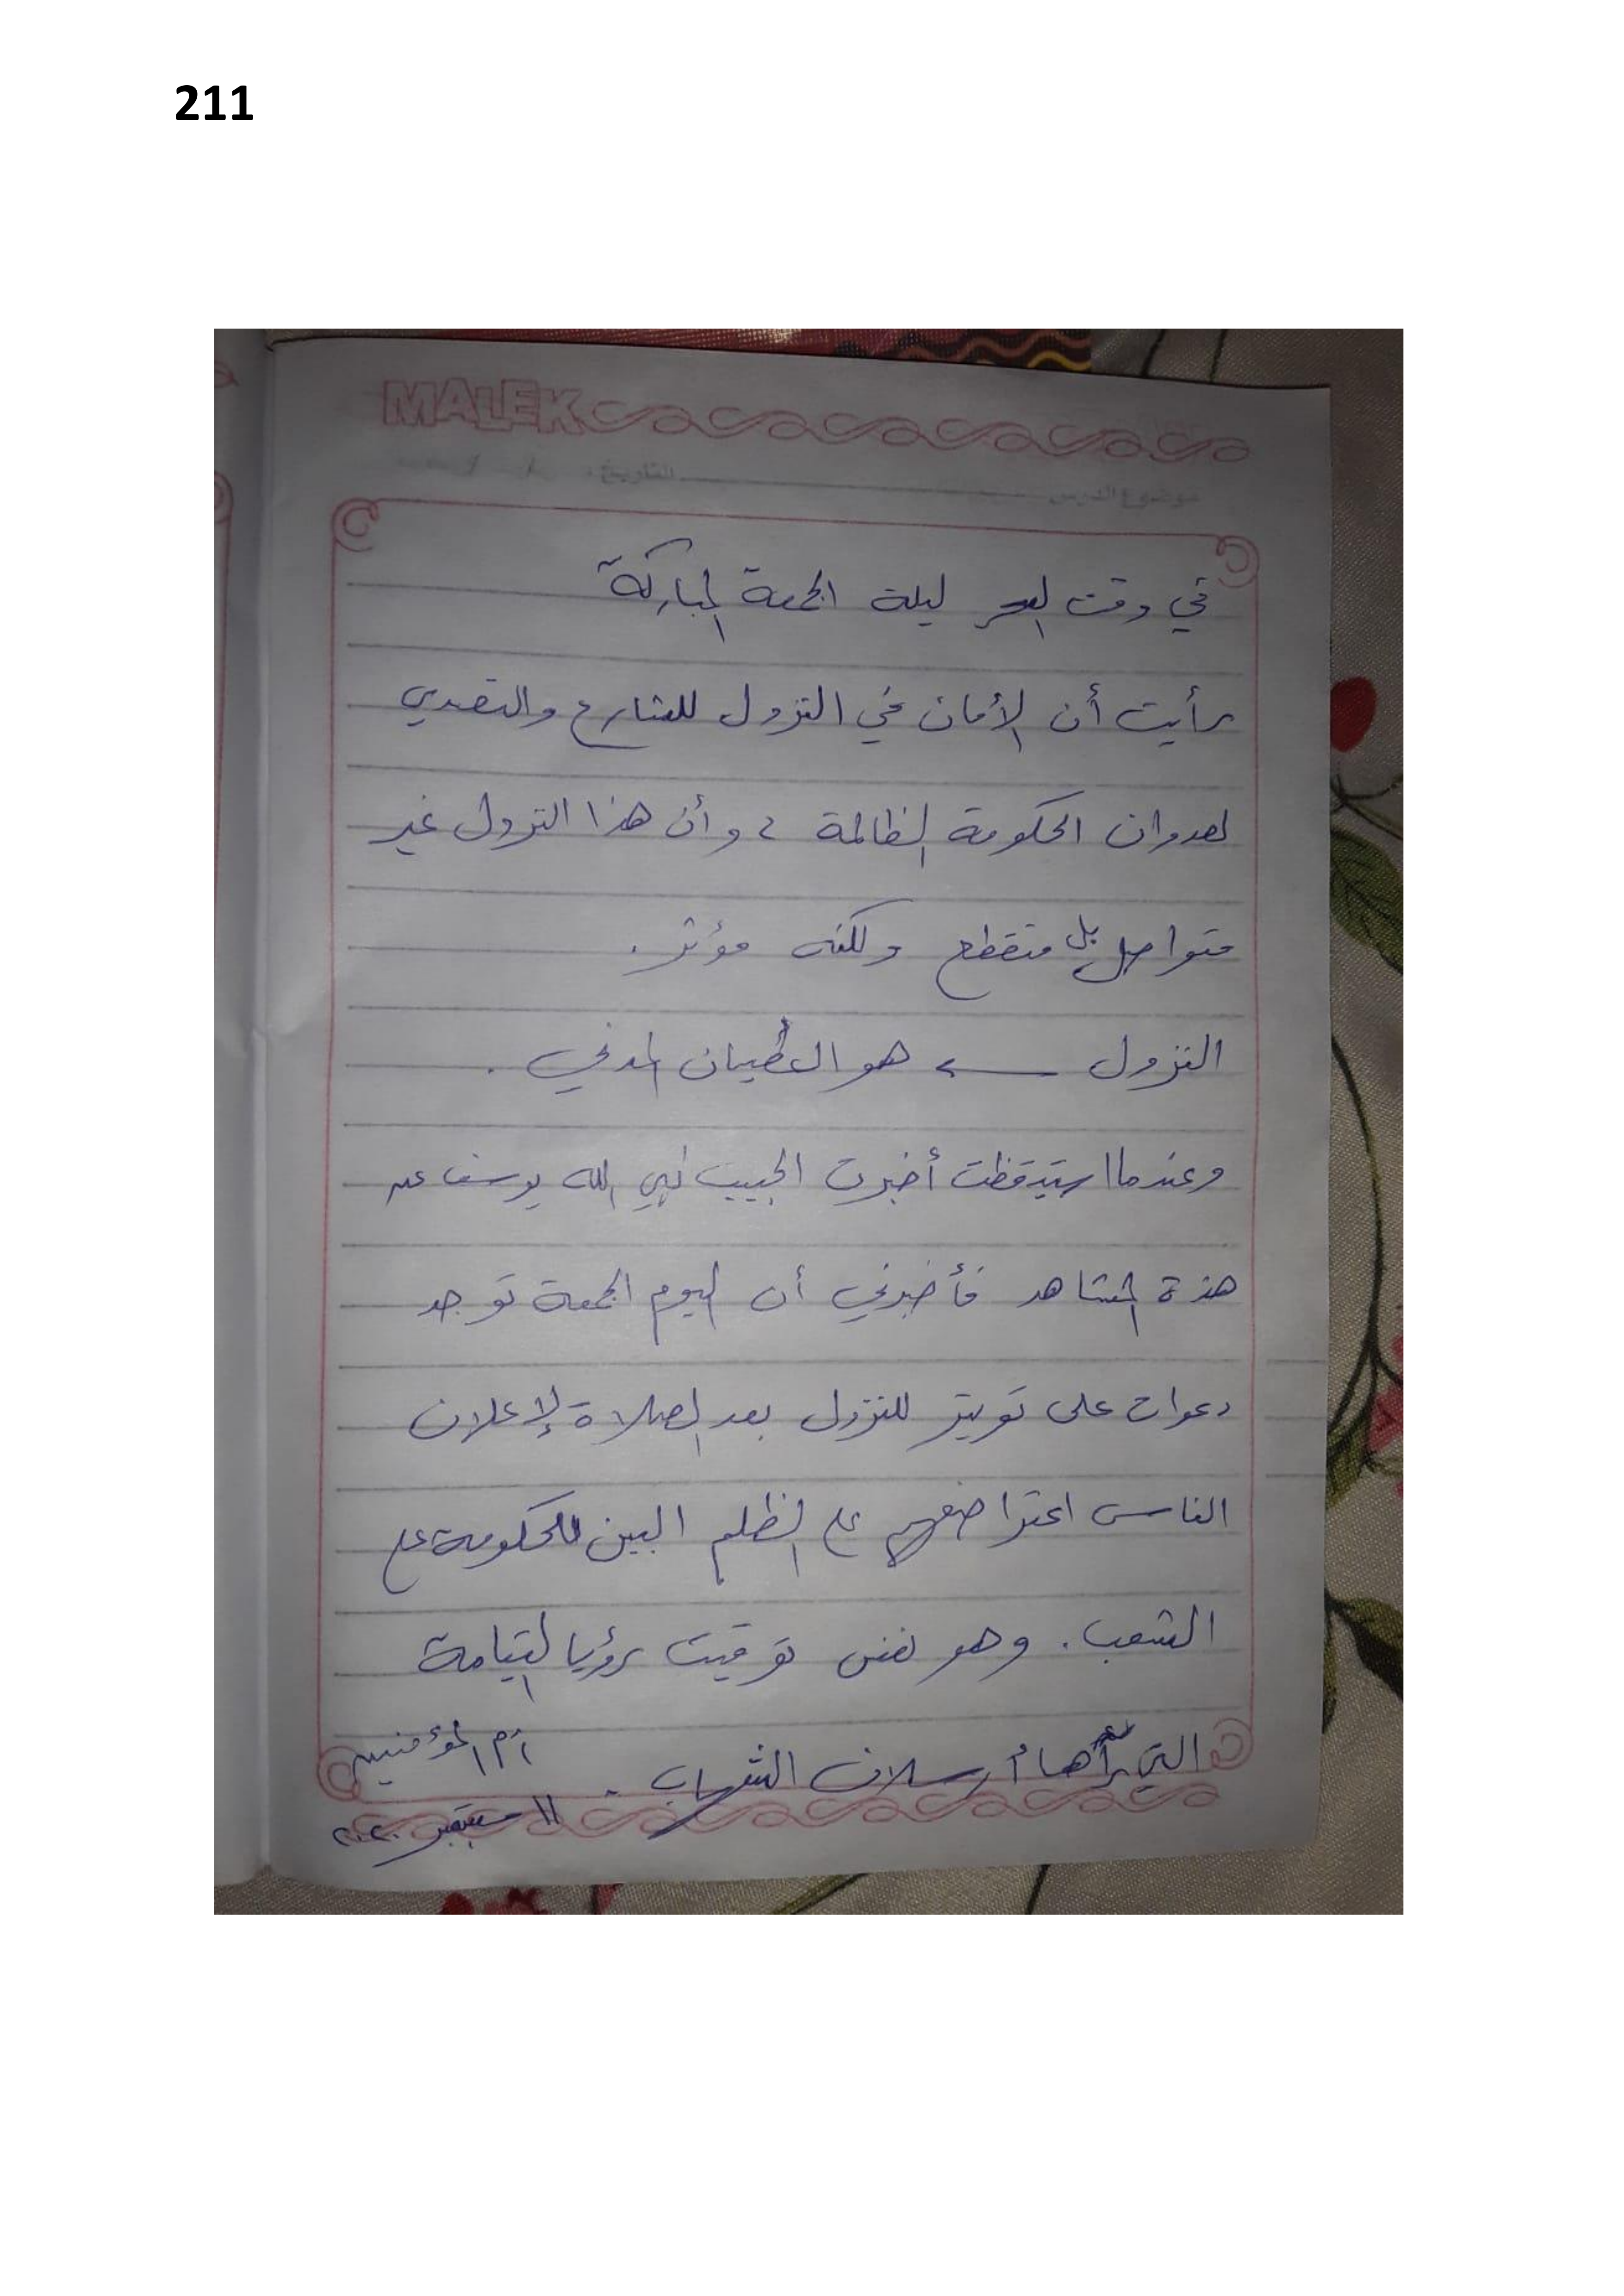 211
MALEK
موضوع الدرس التاريخ:
في وقت السحر ليلة الجمعة المباركة
رأيت أن الأمان في النزول للشارع والتصدي
لعدوان الحكومة الظالمة ، وأن هذا النزول غير
متواصل بل متقطع ولكنه مؤثر .
النزول ← هو العصيان المدني .
وعندما استيقظت أخبرت الحبيب نبي الله يوسف عن
هذة المشاهد فأخبرني أن اليوم الجمعة توجد
دعوات على تويتر للنزول بعد الصلاة لإعلان
الناس اعتراضهم على الظلم البين للحكومة على
الشعب . وهو نفس توقيت رؤيا القيامة
التي رآها أرسلان الشهاب .
أم المؤمنين
١١ سبتمبر ٢٠٢٠